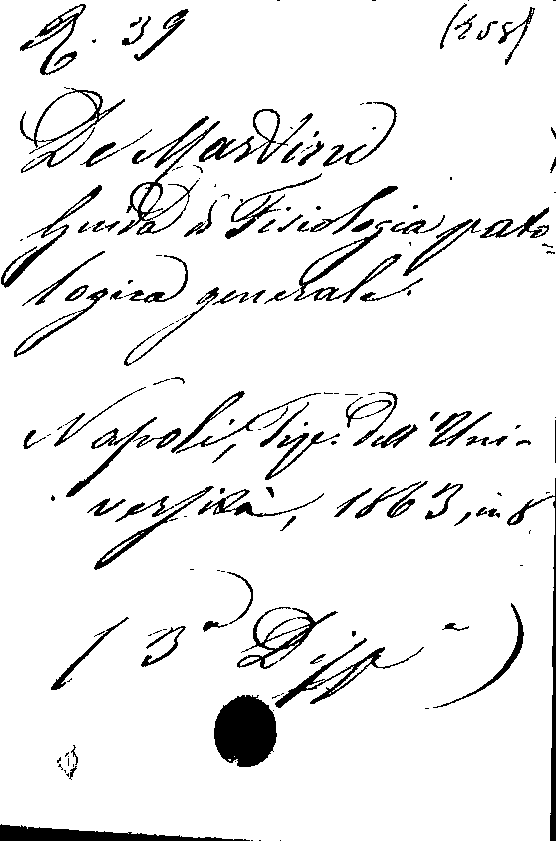 R. 39 (258)
De Martini
Guida di Fisiologia pato-
logica generale.
Napoli, Tip. dell' Uni-
versità, 1863, in 8
(3ª Disp.ª)